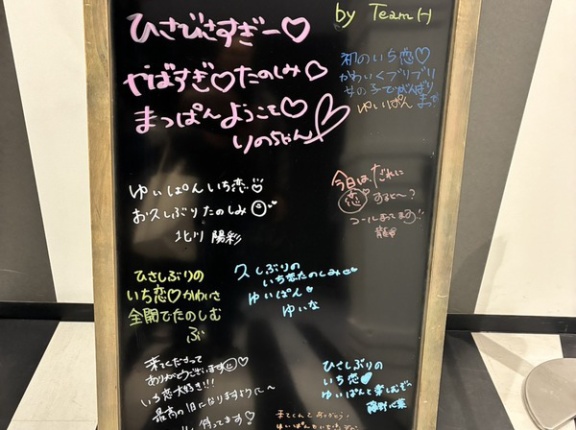 by Team H
ひさびさすぎー♡
やばすぎ♡たのしみ♡
まっぱんようこそ♡
りのちゃん♡
初のいち恋♡
かわいくブリブリ
女の子でがんばり
ゆいぱん
ゆいぱんいち恋♡
お久しぶりたのしみ
北川 陽彩
今日は、だれに
恋する〜?
コールまってます
ひさしぶりの
いち恋♡かわいさ
全開でたのしむ
ぶ
久しぶりの
いち恋たのしみ
ゆいぱん
ゆいな
来てくださって
ありがとうございます♡
いち恋大好き!!!
最高の1日になりますように〜
待ってます♡
ひさしぶりの
いち恋
ゆいぱんと楽しむぞ